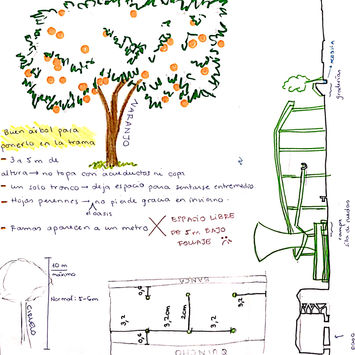 NARANJO
Buen árbol para
ponerlo en la trama
- 3 a 5 m de
altura → no topa con aqueductos ni copi
- un solo tronco → deja espacio para sentarse entremedios
- Hojas perennes → no pierde gracia en invierno
oasis
- Ramas aparecen a un metro
ESPACIO LIBRE
DE 5m BAJO
FOLLAJE
10 m
máximo
Normal: 5-6m
CIRUELO
BANCA
0,6
3,2
3,2cm
2cm
3,2
0,6
3,2
QUINCHO
graderías
rampa